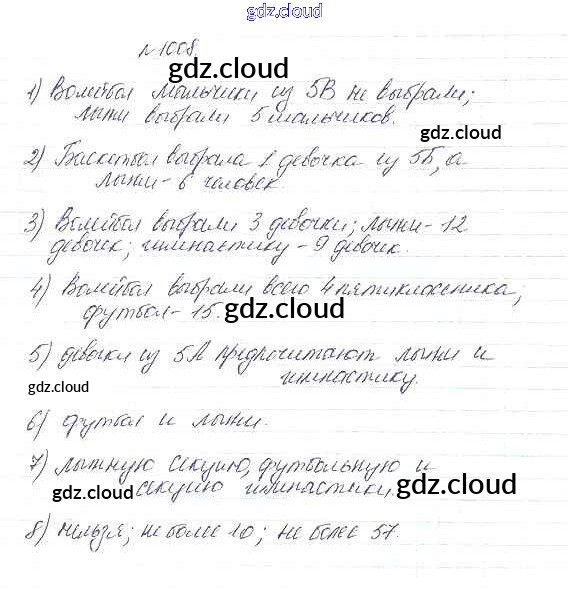 gdz.cloud
№1008.
gdz.cloud
1) Волейбол мальчики из 5В не выбрали;
лыжи выбрали 5 мальчиков.
gdz.cloud
2) Баскетбол выбрала 1 девочка из 5Б, а
лыжи - 6 человек.
3) Волейбол выбрали 3 девочки; лыжи - 12
девочек; гимнастику - 9 девочек.
gdz.cloud
4) Волейбол выбрали всего 4 пятиклассника;
футбол - 15.
gdz.cloud
5) девочки из 5А предпочитают лыжи и
гимнастику.
gdz.cloud
6) футбол и лыжи.
7) лыжную секцию, футбольную и
секцию гимнастики.
gdz.cloud gdz.cloud
8) нельзя; не более 10; не более 57.
gdz.cloud